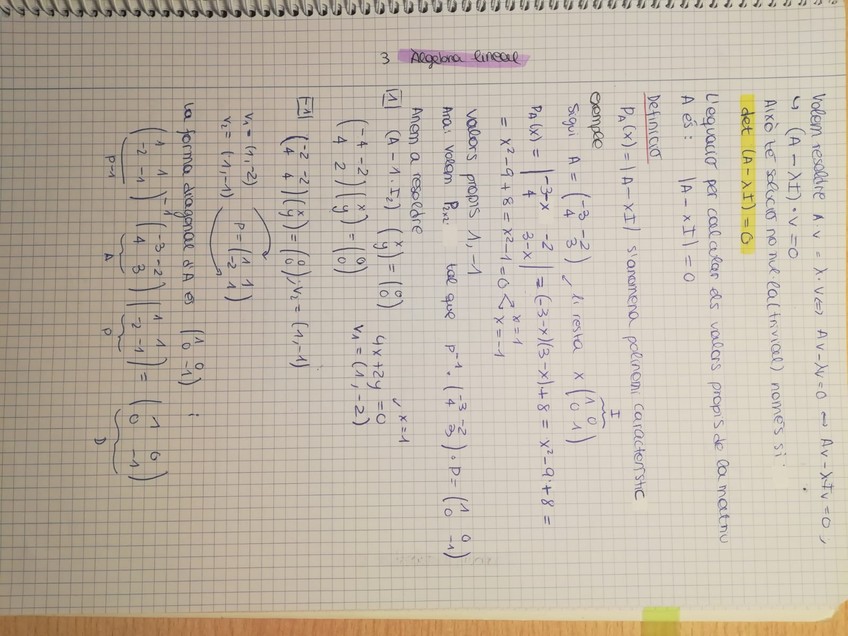 3 Àlgebra lineal
Volem resoldre A v = λ·v ⇔ Av-λv=0 ⇔ Av-λIv=0,
↳ (A-λI)·v=0
Això té solució no nul·la (trivial) només si:
det (A-λI)=0
L'equació per calcular els valors propis de la matriu
A és: |A-xI|=0
Definició
P_A(x)=|A-xI| s'anomena polinomi característic
exemple
Sigui A = (-3 -2; 4 3) ✓ li resta x (1 0; 0 1) I
P_A(x) = |-3-x -2; 4 3-x| = (-3-x)(3-x)+8 = x²-9+8 =
= x²-9+8 = x²-1=0 < x=1; x=-1
Valors propis 1, -1
Ara: volem P tal que P⁻¹·(-3 -2; 4 3)·P = (1 0; 0 -1)
Anem a resoldre
[1] (A-1·I₂) (x; y) = (0; 0) ✓ x=1
4x+2y=0
(-4 -2; 4 2)(x; y) = (0; 0) v₁=(1,-2)
[-1] (-2 -2; 4 4)(x; y) = (0; 0); v₂=(1,-1)
v₁=(1,-2)
v₂=(1,-1) P=(1 1; -2 1)
la forma diagonal d'A és (1 0; 0 -1):
(1 1; -2 -1)⁻¹ (-3 -2; 4 3) (1 1; -2 -1) = (1 0; 0 -1)
P⁻¹ A P D